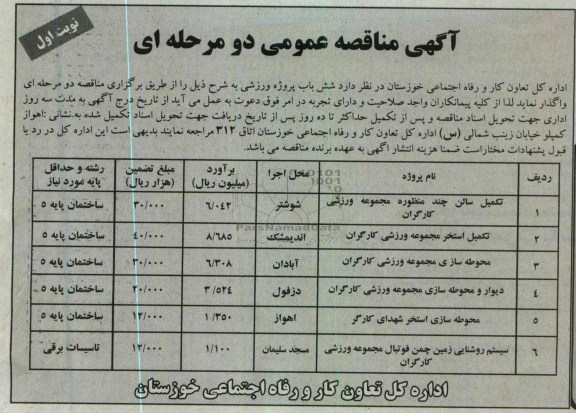 نوبت اول
آگهی مناقصه عمومی دو مرحله ای
اداره کل تعاون کار و رفاه اجتماعی خوزستان در نظر دارد شش باب پروژه ورزشی به شرح ذیل را از طریق برگزاری مناقصه دو مرحله ای
واگذار نماید لذا از کلیه پیمانکاران واجد صلاحیت و دارای تجربه در امر فوق دعوت به عمل می آید از تاریخ درج آگهی به مدت سه روز
اداری جهت تحویل اسناد مناقصه و پس از تکمیل حداکثر تا ده روز پس از تاریخ دریافت جهت تحویل اسناد تکمیل شده به نشانی :اهواز
کمپلو خیابان زینب شمالی (س) اداره کل تعاون کار و رفاه اجتماعی خوزستان اتاق ۳۱۲ مراجعه نمایند بدیهی است این اداره کل در رد یا
قبول پشنهادات مختاراست ضمنا هزینه انتشار آگهی به عهده برنده مناقصه می باشد.
ردیف نام پروژه محل اجرا برآورد (میلیون ریال) مبلغ تضمین (هزار ریال) رشته و حداقل پایه مورد نیاز
۱ تکمیل سالن چند منظوره مجموعه ورزشی کارگران شوشتر ۶/۰۴۲ ۳۰/۰۰۰ ساختمان پایه ۵
۲ تکمیل استخر مجموعه ورزشی کارگران اندیمشک ۸/۶۸۵ ۴۰/۰۰۰ ساختمان پایه ۵
۳ محوطه سازی مجموعه ورزشی کارگران آبادان ۶/۳۰۸ ۳۰/۰۰۰ ساختمان پایه ۵
۴ دیوار و محوطه سازی مجموعه ورزشی کارگران دزفول ۳/۵۲۴ ۲۰/۰۰۰ ساختمان پایه ۵
۵ محوطه سازی استخر شهدای کارگر اهواز ۱/۳۵۰ ۱۲/۰۰۰ ساختمان پایه ۵
۶ سیستم روشنایی زمین چمن فوتبال مجموعه ورزشی کارگران مسجد سلیمان ۱/۱۰۰ ۱۲/۰۰۰ تاسیسات برقی
ParsNamadData
اداره کل تعاون کار و رفاه اجتماعی خوزستان